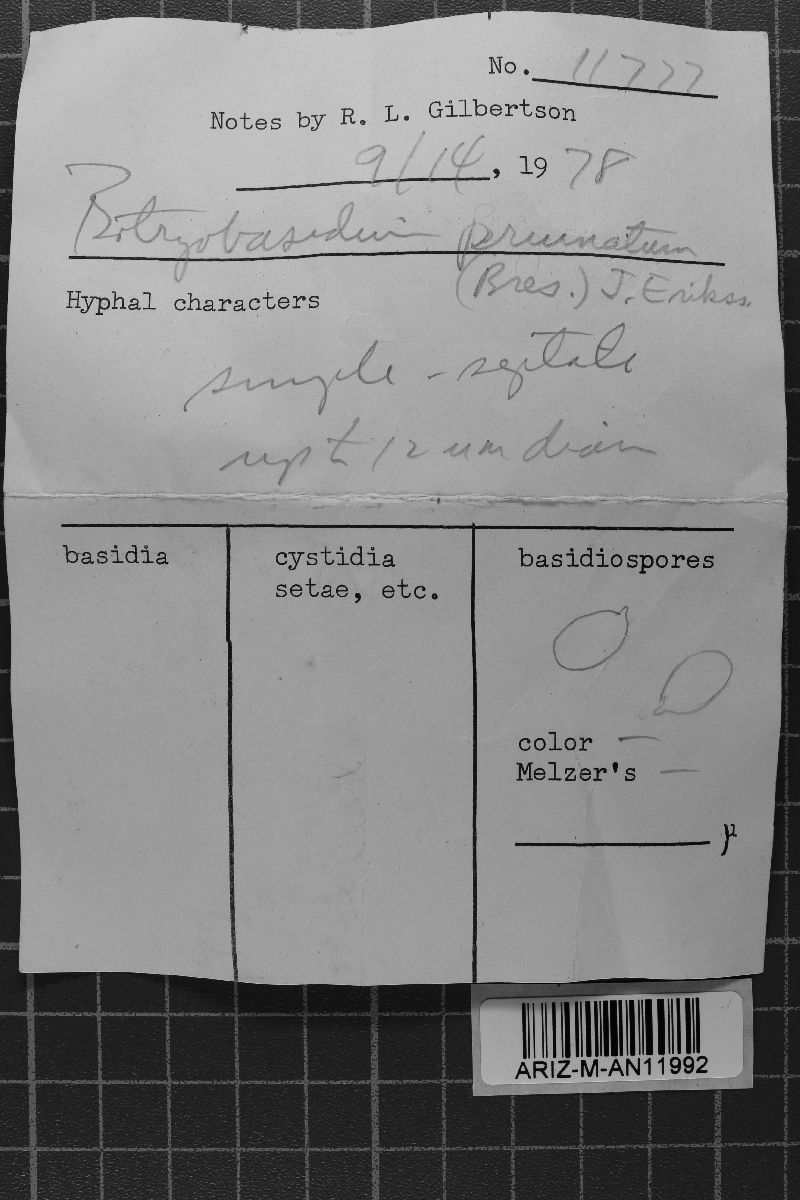 No. 11777
Notes by R. L. Gilbertson
9/14, 1978
Botryobasidium pruinatum
(Bres.) J. Erikss.
Hyphal characters
simple-septate
up to 12 um diam
basidia
cystidia
setae, etc.
basidiospores
color —
Melzer's —
µ
ARIZ-M-AN11992